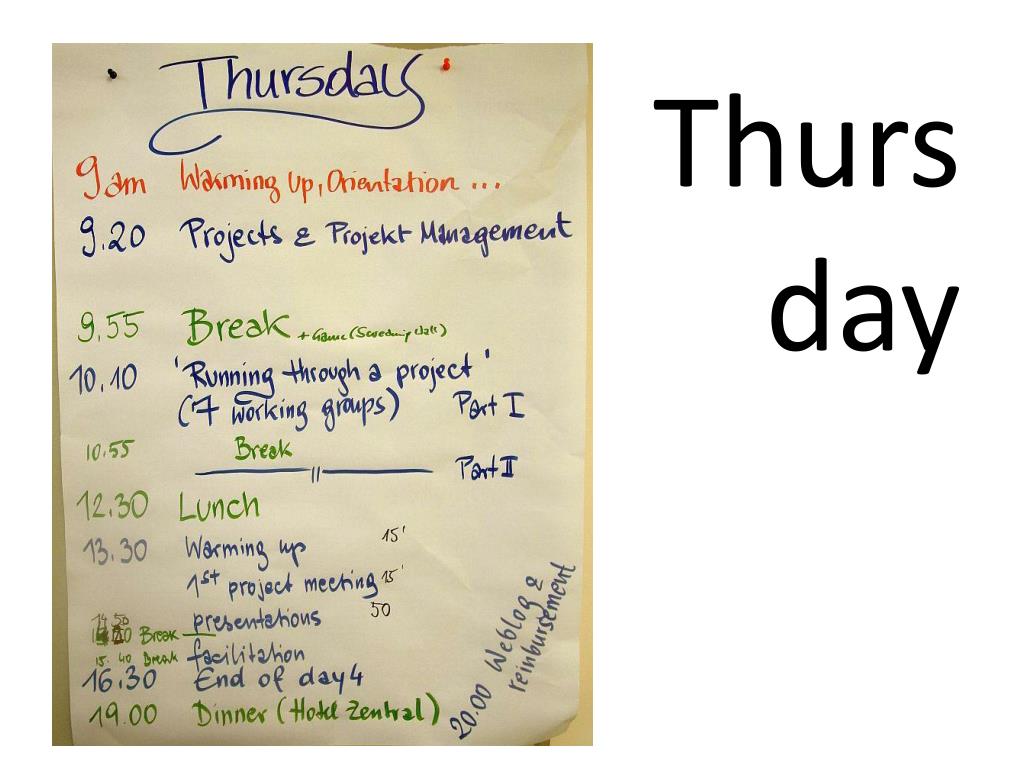 Thursday
9am Warming Up, Orientation ...
9.20 Projects & Projekt Management
9.55 Break + Game
10.10 'Running through a project'
(7 working groups) Part I
10.55 Break
Part II
12.30 Lunch
13.30 Warming up 15'
1st project meeting 15'
presentations 50
14.50
Break
15.40 Break facilitation
16.30 End of day 4
19.00 Dinner (Hotel Zentral)
20.00 Weblog &
reimbursement
Thurs
day